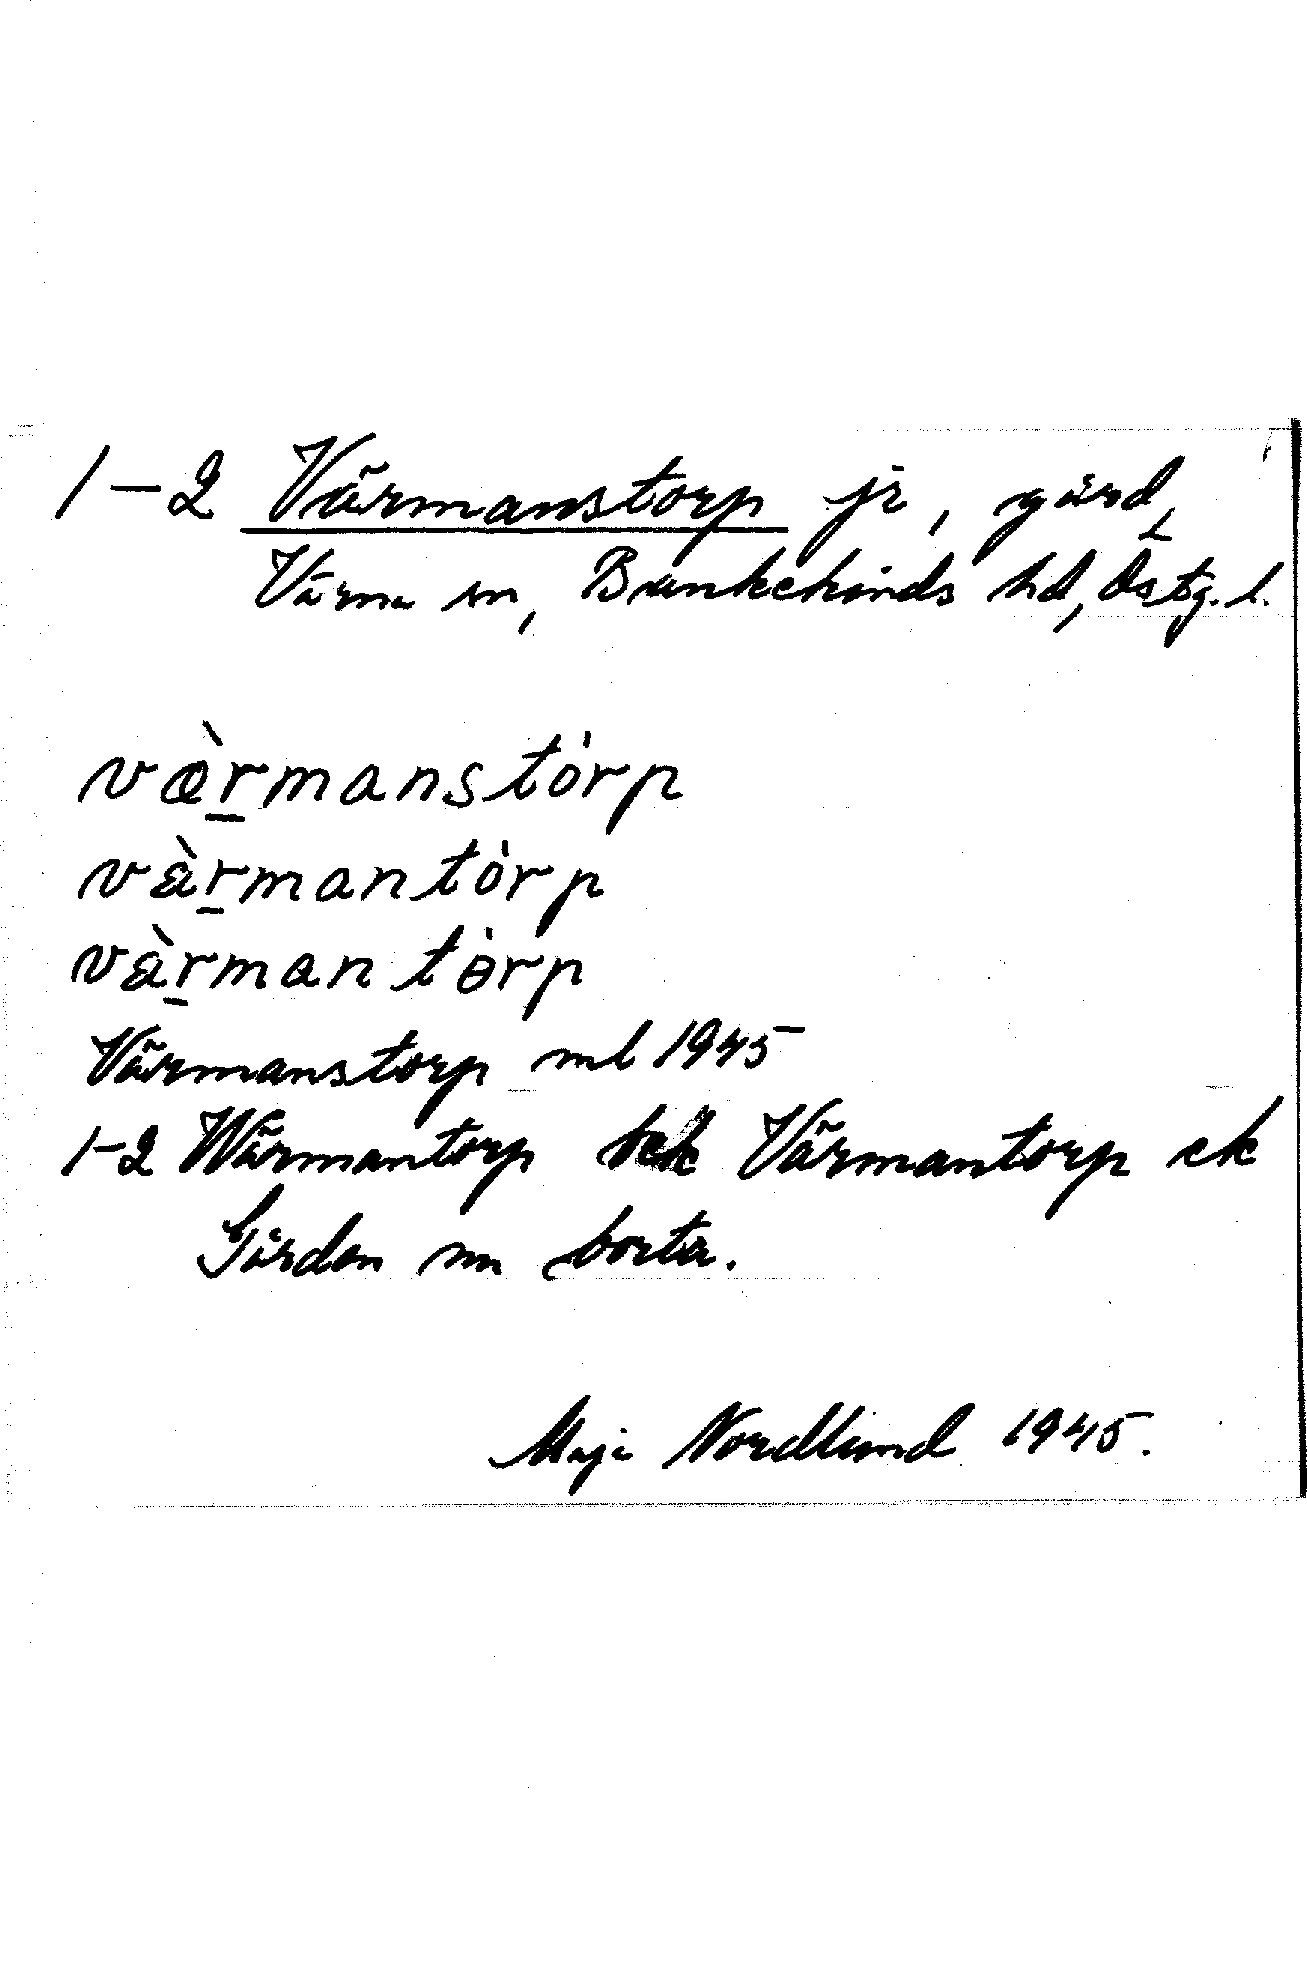 1-2 Värmanstorp jr, gård,
Värna sn, Bankekinds hd, Östg. l.
væ̀rmanstȯrp
vàrmantȯrp
vàrmantɵ̇rp
Värmanstorp ml 1945
1-2 Wärmantorp Värmantorp ek
Gården nu borta.
Maja Nordlund 1945.